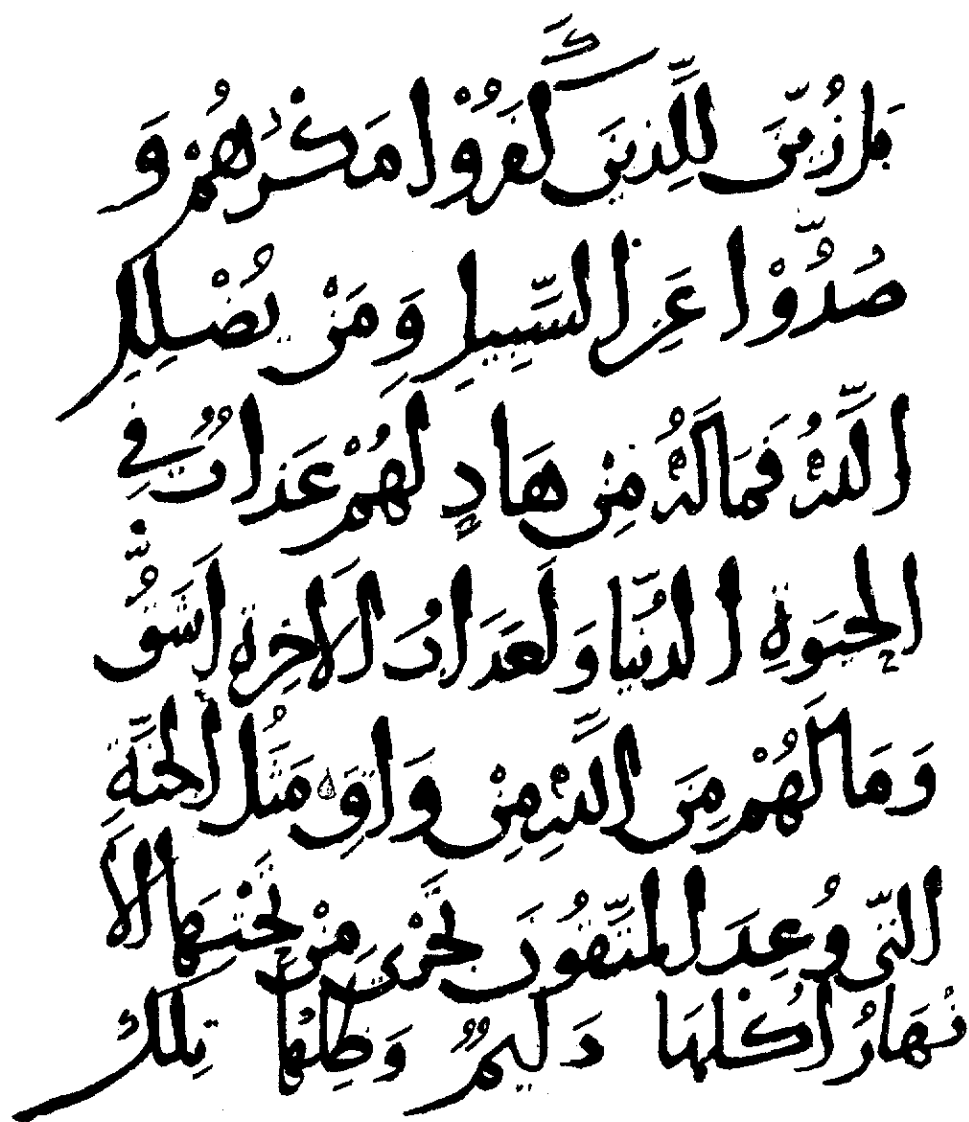 بل زُيِّنَ لِلَّذِينَ كَفَرُوْا مَكْرُهُمْ وَ
صُدُّوْا عَنِ السَّبِيلِ وَمَنْ يُضْلِلِ
اللَّهُ فَمَا لَهُ مِنْ هَادٍ لَهُمْ عَذَابٌ فِي
الْحَيَوةِ الدُّنْيَا وَلَعَذَابُ الْآخِرَةِ أَشَقُّ
وَمَا لَهُمْ مِنَ اللَّهِ مِنْ وَاقٍ مَثَلُ الْجَنَّةِ
الَّتِي وُعِدَ الْمُتَّقُونَ تَجْرِي مِنْ تَحْتِهَا الْأَ
نْهَارُ أُكُلُهَا دَايِمٌ وَظِلُّهَا تِلْكَ